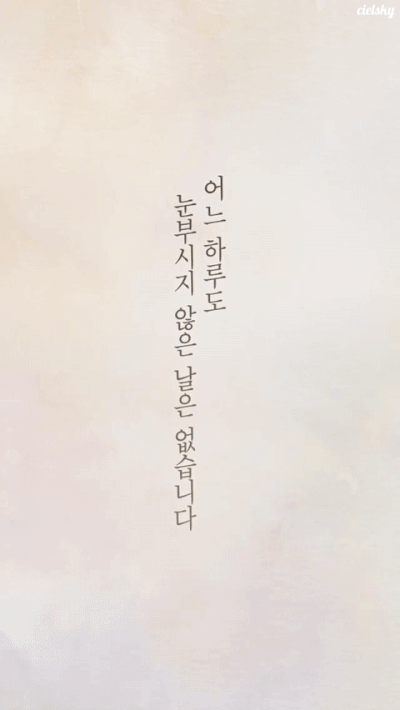 cielsky
어느 하루도
눈부시지 않은 날은 없습니다